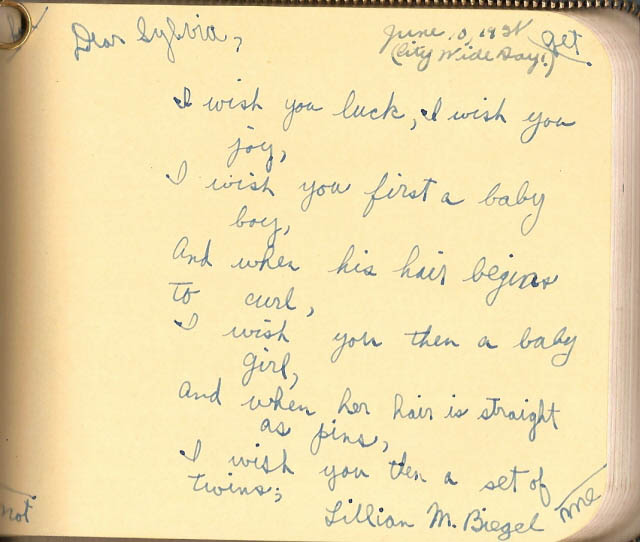 Dear Sylvia,
June 10, 1931
(City Wide Day!)
get
I wish you luck, I wish you
joy,
I wish you first a baby
boy,
And when his hair begins
to curl,
I wish you then a baby
girl,
And when her hair is straight
as pins,
I wish you then a set of
twins;
Lillian M. Biegel
not
me